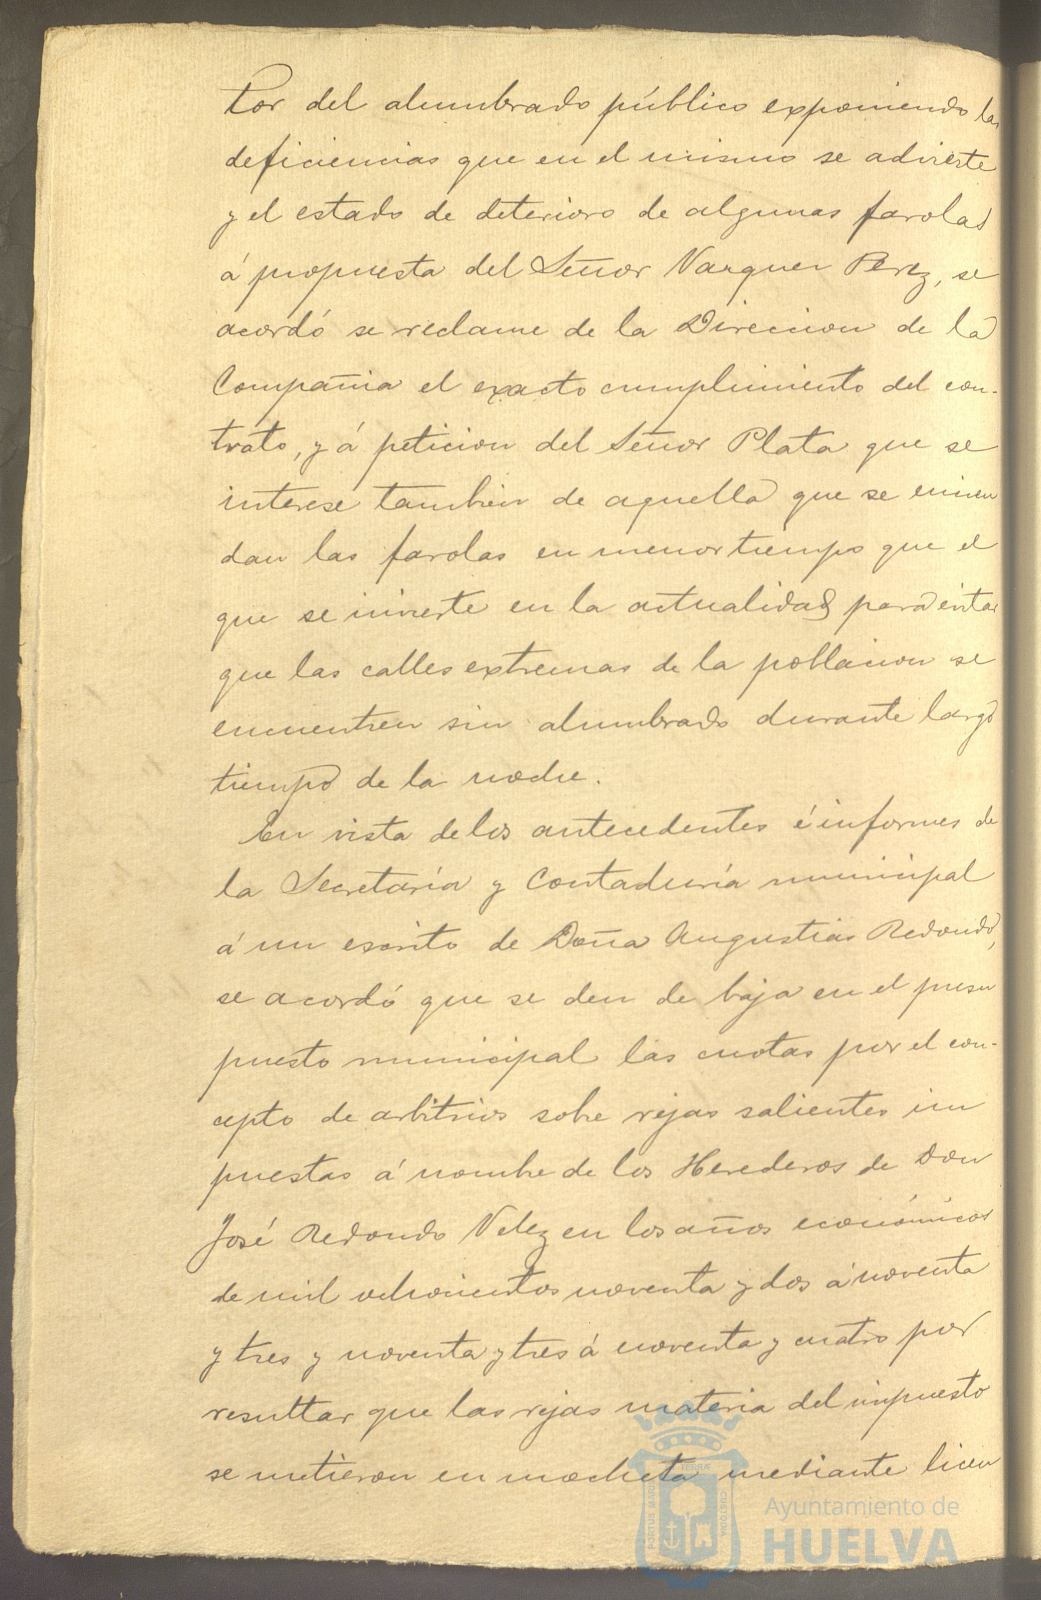 tor del alumbrado público exponiendo las
deficiencias que en el mismo se advierte
y el estado de deterioro de algunas farolas
á propuesta del Señor Vazquez Perez, se
acordó se reclame de la Direccion de la
Compañia el exacto cumplimiento del con-
trato, y á peticion del Señor Plata que se
interese tambien de aquella que se encien
dan las farolas en menor tiempo que el
que se invierte en la actualidad para evitar
que las calles extremas de la poblacion se
encuentren sin alumbrado durante largo
tiempo de la noche.
En vista de los antecedentes é informes de
la Secretaría y Contaduría municipal
á un escrito de Doña Angustias Redondo,
se acordó que se den de baja en el presu
puesto municipal las cuotas por el con-
cepto de arbitrios sobre rejas salientes im
puestas á nombre de los Herederos de Don
José Redondo Velez en los años económicos
de mil ochocientos noventa y dos á noventa
y tres y noventa y tres á noventa y cuatro por
resultar que las rejas materia del impuesto
se metieron en mocheta mediante licen
PORTUS MARIS
ET TERRÆ
CUSTODIA
Ayuntamiento de
HUELVA